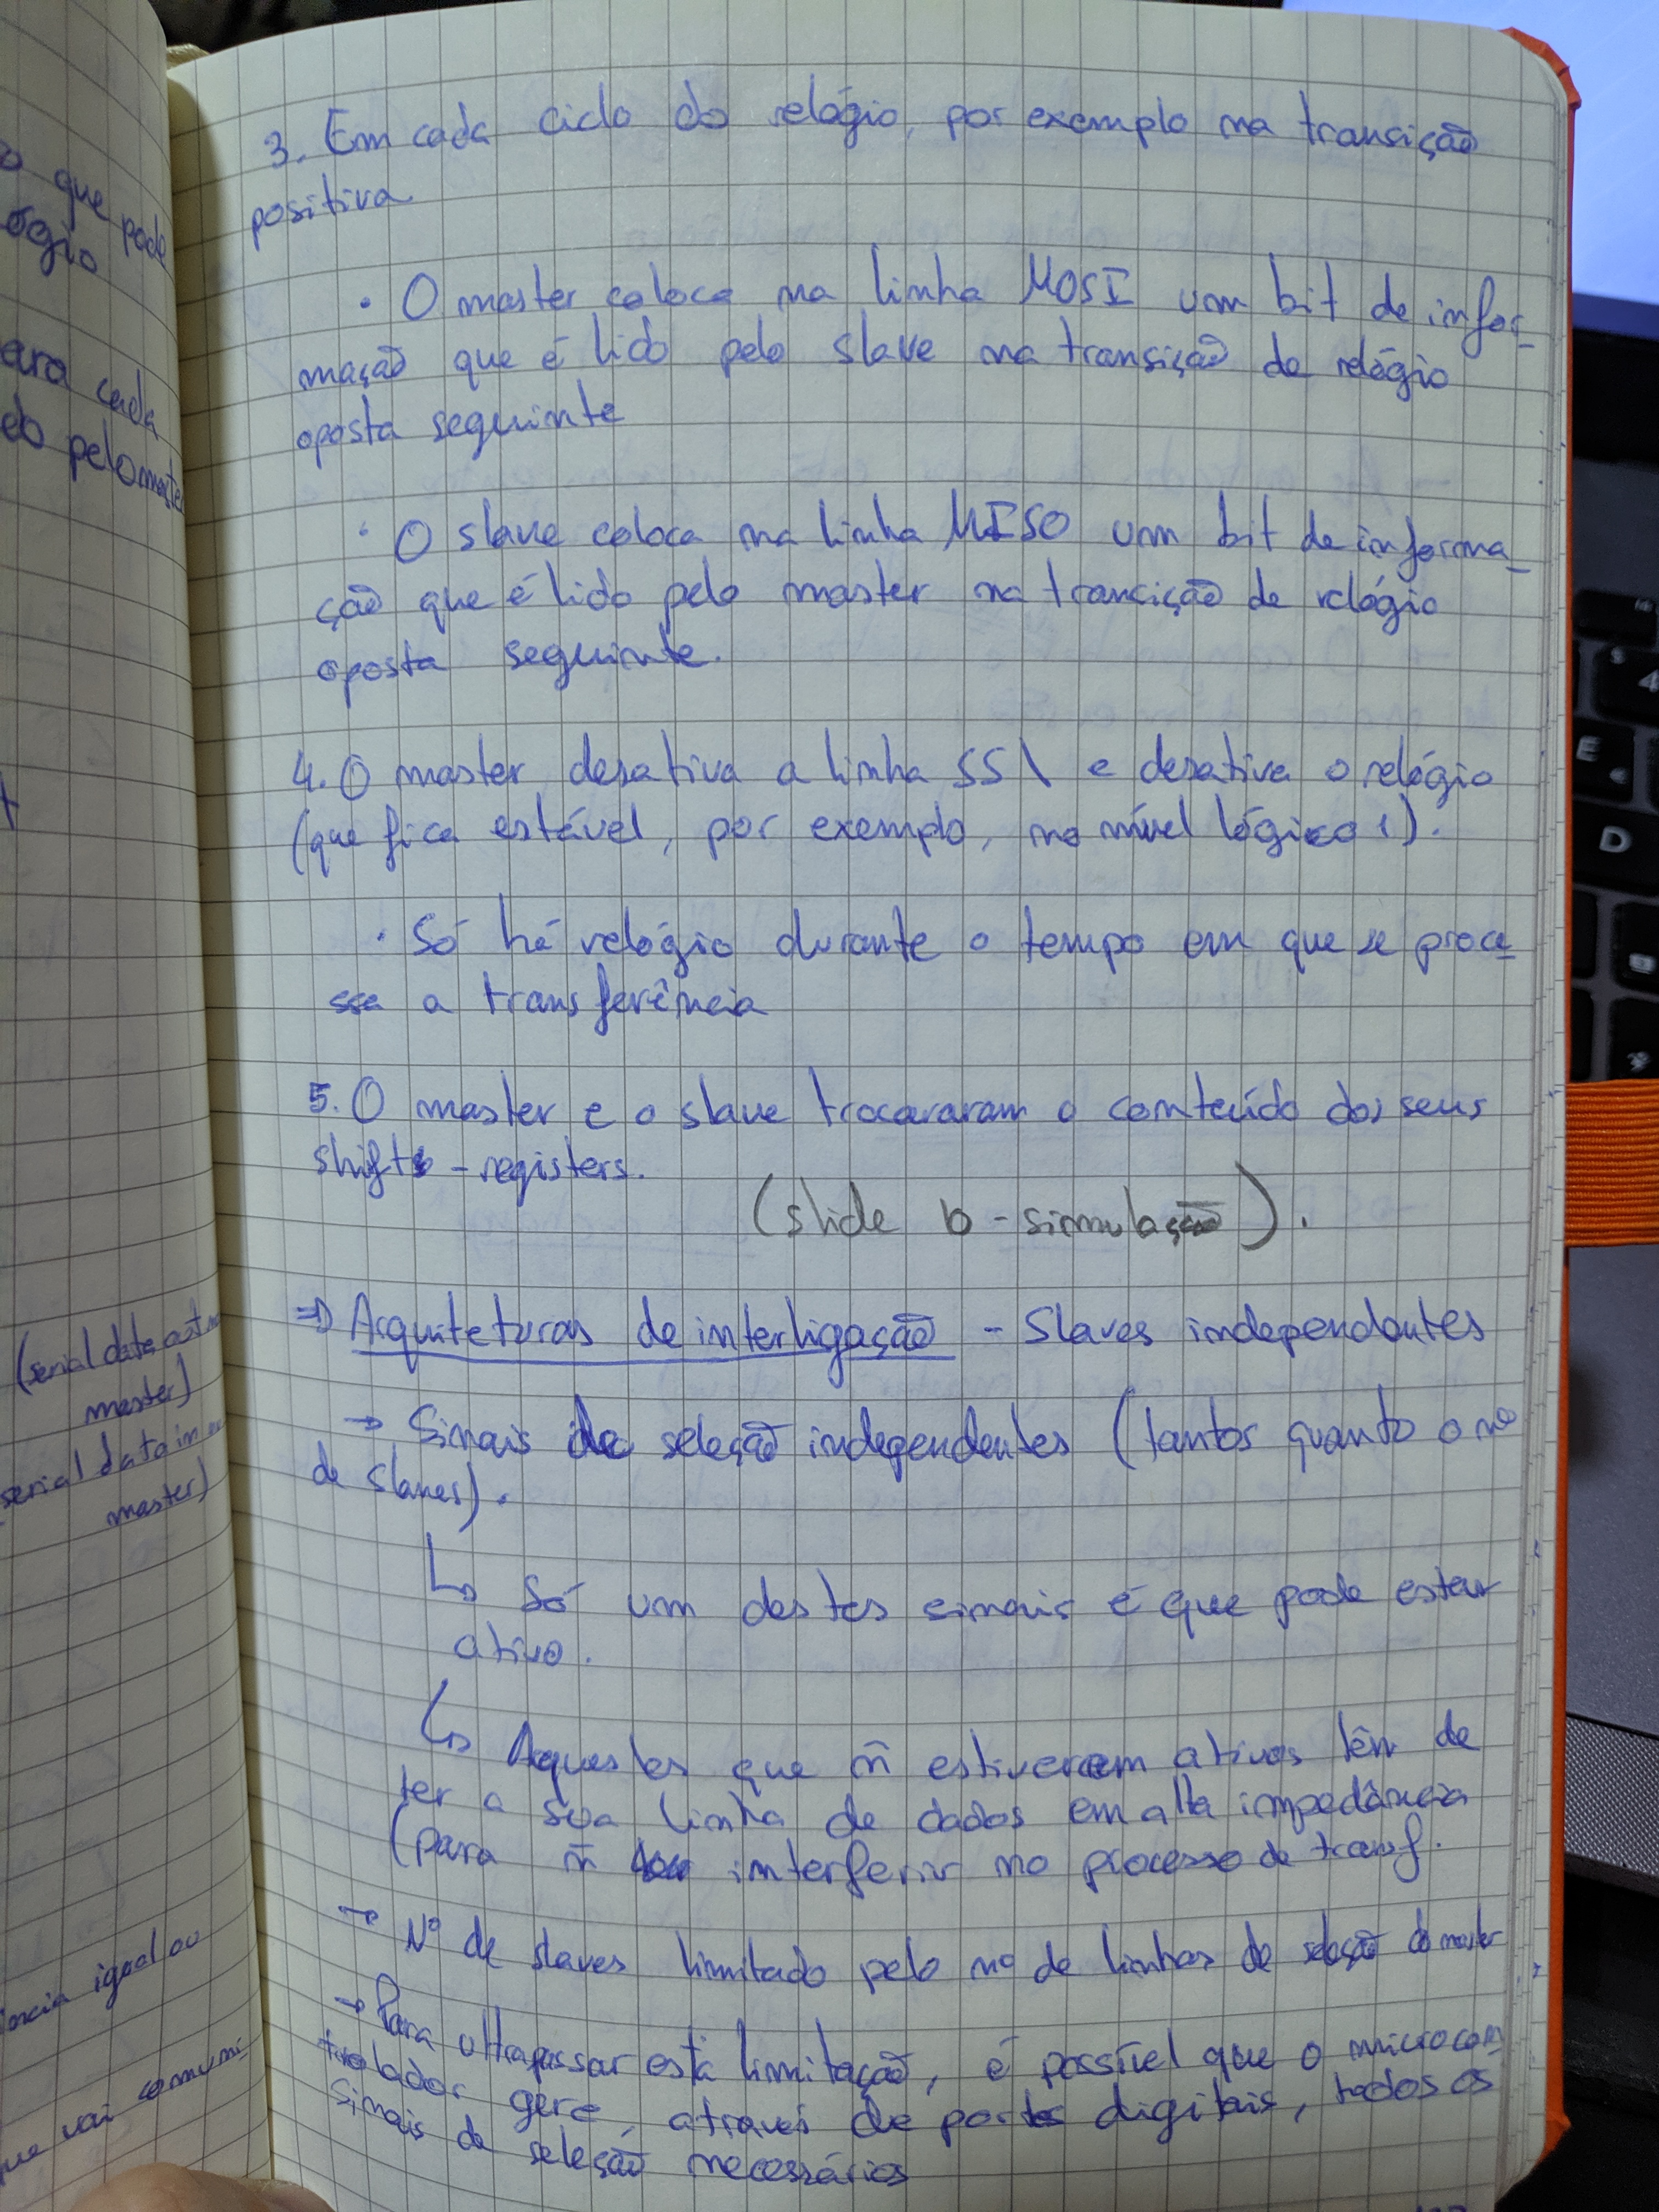 o que pode
ógio
ara cada
do pelo master
(serial data out
master)
serial data in
master)
ência igual ou
que vai comuni
3. Em cada ciclo do relógio, por exemplo na transição
positiva
· O master coloca na linha MOSI um bit de infor-
mação que é lido pelo slave na transição de relógio
oposta seguinte
· O slave coloca na linha MISO um bit de informa-
ção que é lido pelo master na trancição de relógio
oposta seguinte.
4. O master desativa a linha SS\ e desativa o relógio
(que fica estável, por exemplo, no nível lógico 1).
· Só há relógio durante o tempo em que se proce-
ssa a transferência
5. O master e o slave trocararam o conteúdo dos seus
shift-registers.
(slide 10 - simulação).
⇒ Arquiteturas de interligação - Slaves independentes
→ Sinais de seleção independentes (tantos quanto o nº
de slaves).
↳ Só um destes sinais é que pode estar
ativo.
↳ Aqueles que ñ estiverem ativos têm de
ter a sua linha de dados em alta impedância
(para ñ interferir no processo de transf.
→ Nº de slaves limitado pelo nº de linhas de seleção do master
→ Para ultrapassar esta limitação, é possível que o microcon
trolador gere, através de portos digitais, todos os
sinais de seleção necessários